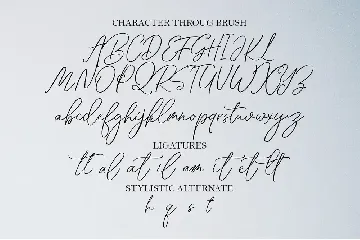 CHARACTER THROUG BRUSH
ABCDEFGHIJKL
MNOPQRSTUVWXYZ
abcdefghijklmnopqrstuvwxyz
LIGATURES
tt al at il am it et lt
STYLISTIC ALTERNATE
h q s t